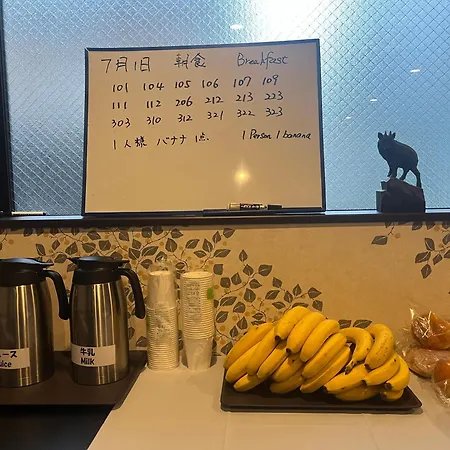 7月1日 朝食 Breakfast
101 104 105 106 107 109
111 112 206 212 213 223
303 310 312 321 322 323
1人様 バナナ 1点 1 Person 1 banana
ース
牛乳
uice
Milk